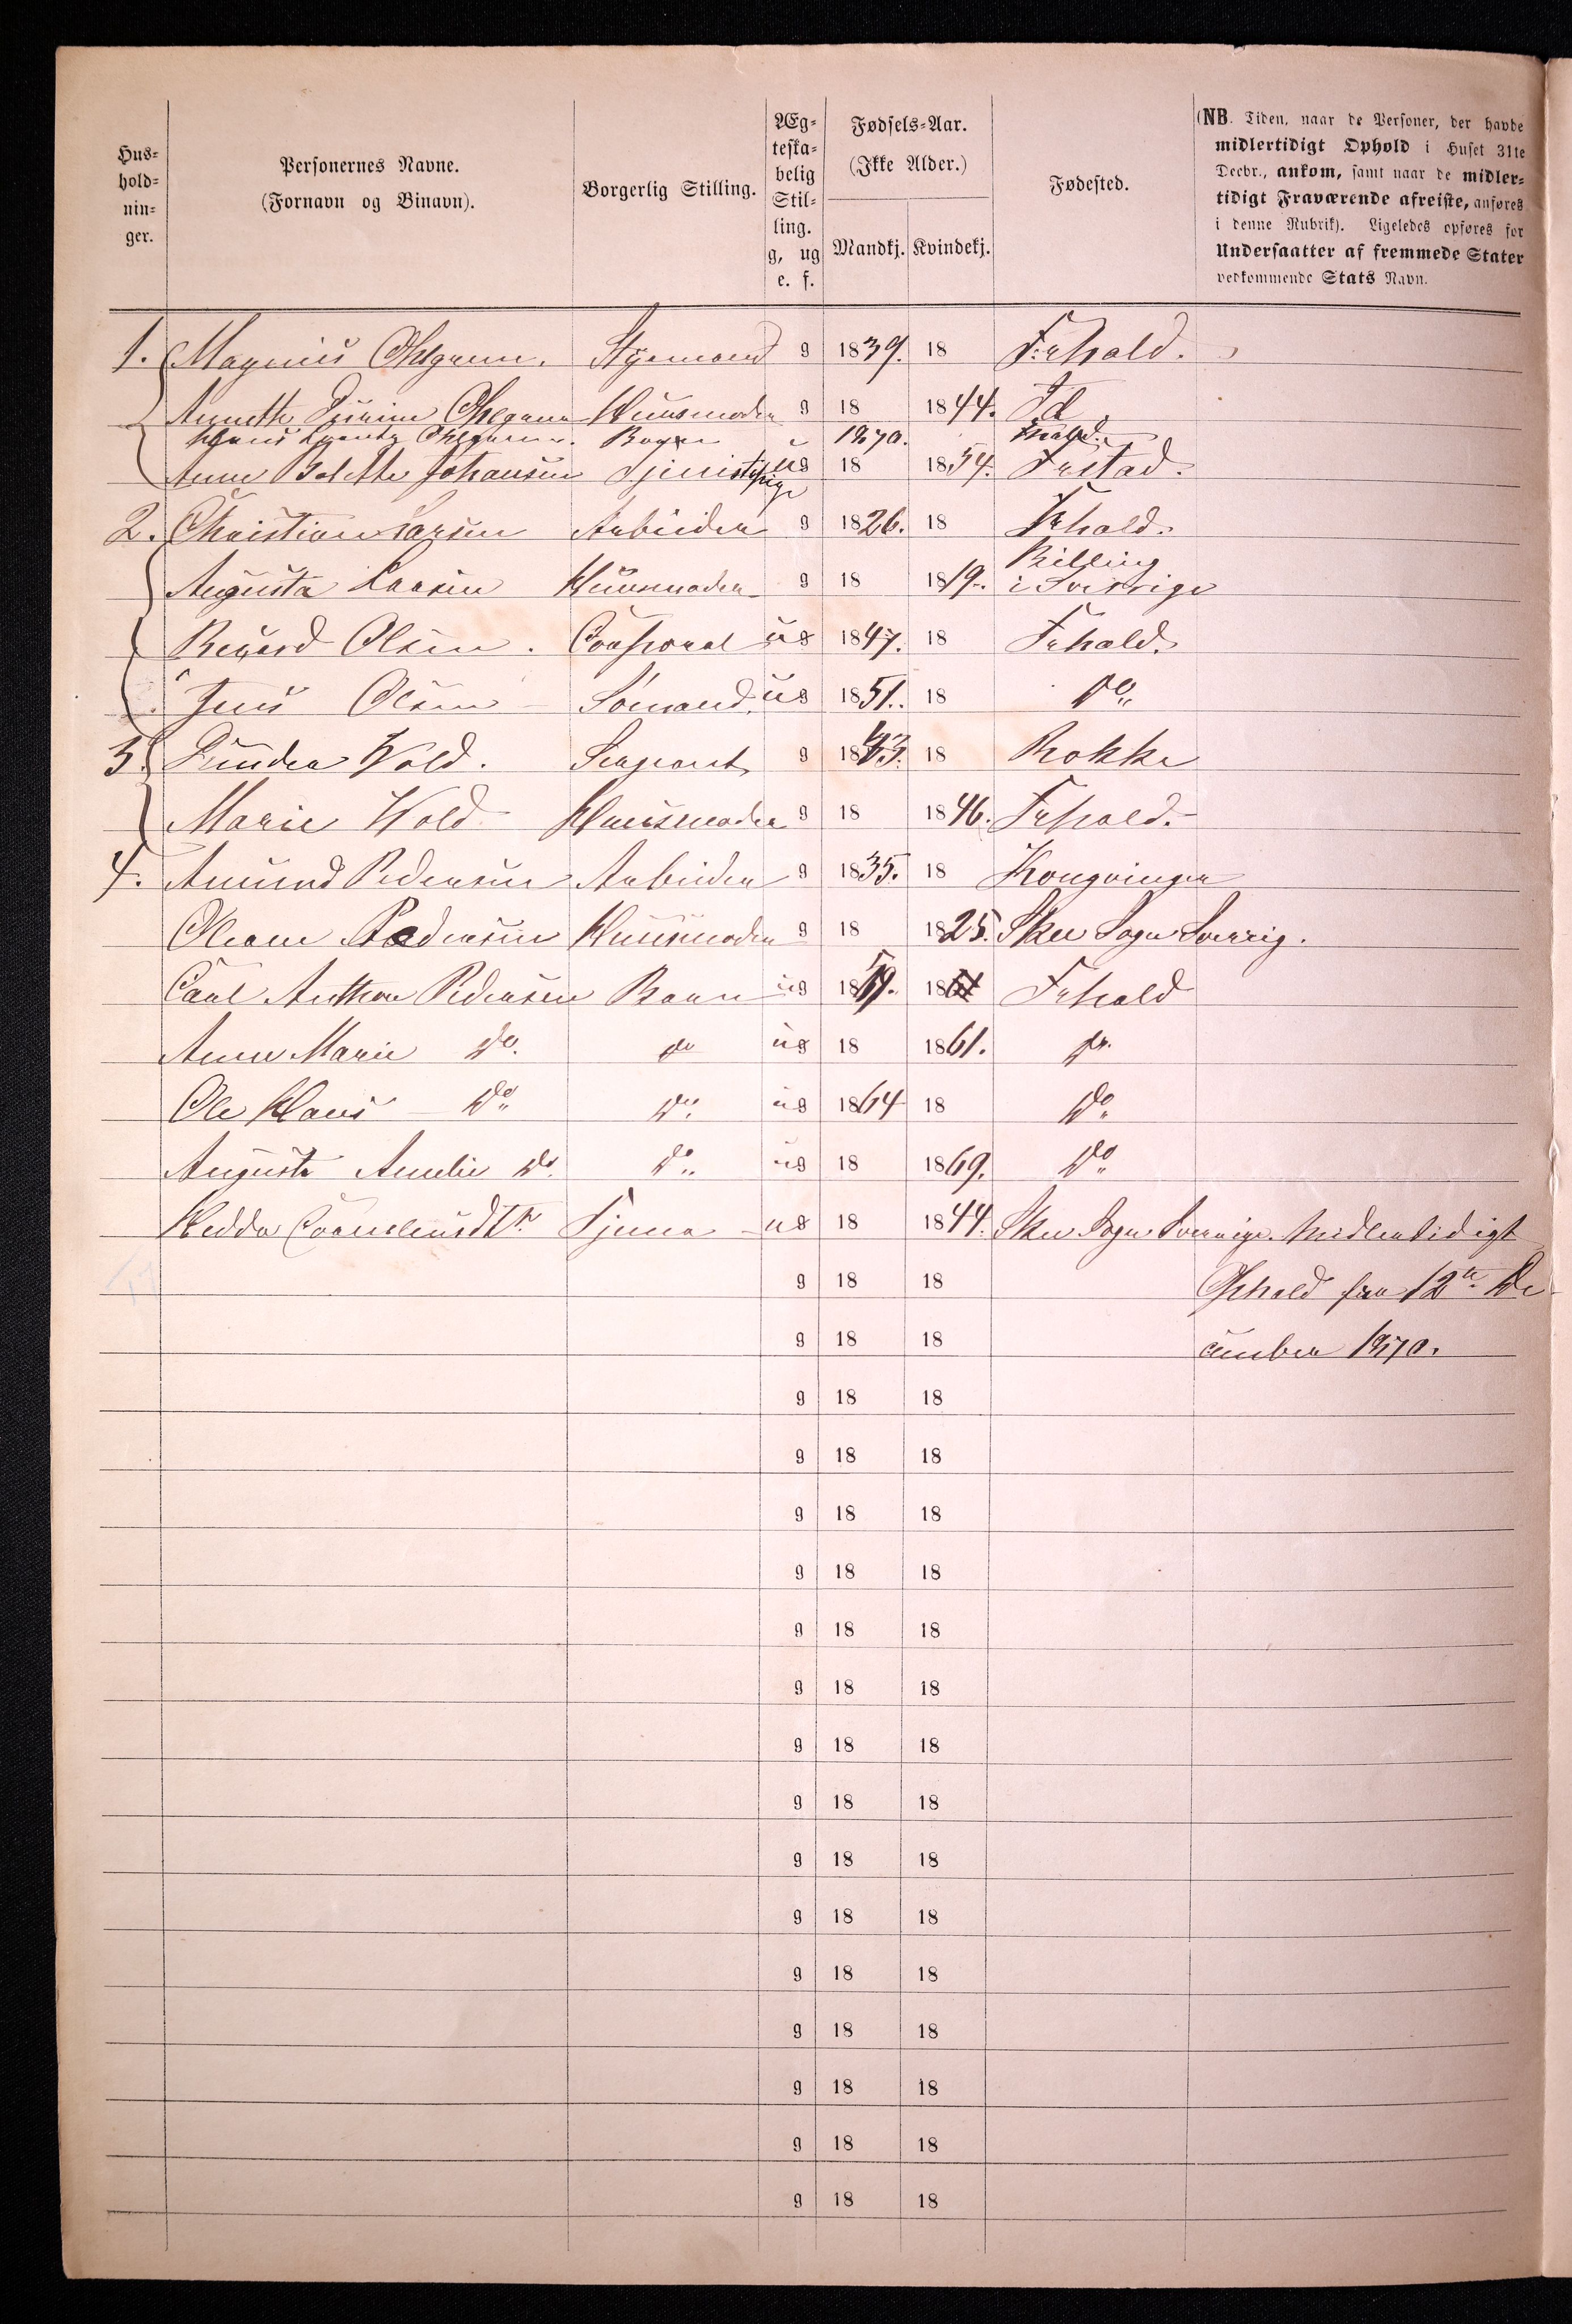 Hus-
hold-
nin-
ger.
Personernes Navne.
(Fornavn og Binavn).
Borgerlig Stilling.
Æg-
teska-
belig
Stil-
ling.
g, ug
e. f.
Fødsels-Aar.
(Ikke Alder.)
Mandkj. Kvindekj.
Fødested.
(NB. Tiden, naar de Personer, der havde
midlertidigt Ophold i Huset 31te
Decbr., ankom, samt naar de midler-
tidigt Fraværende afreiste, anføres
i denne Rubrik). Ligeledes opføres for
Undersaatter af fremmede Stater
vedkommende Stats Navn.
1. Magnus Ohlgren. Styrmand g 1839. 18 Frhald.
Annette Ohlgren Huusmoder g 18 1844. Id
Hans Lorentz Ohlgren. u 1870. Frhald.
Anne Bolette Johansen Tjenistepige ug 18 1854. Frstad.
2. Christian Larsen Arbeider g 1826. 18 Frhald.
Augusta Larsen Huusmoder g 18 1819. Billing i Sverrige
Olsen. Corporal ug 1847. 18 Frhald.
Jens Olsen Sömand. ug 1851. 18 Do
3. Peder Wold. Sergeant g 1843. 18 Rokke
Marie Wold Huusmoder g 18 1846. Frhald.
4. Amund Pedersen Arbeider g 1835. 18 Kongvinger
Oleane Pedersen Huusmoder g 18 1825. Skee Sogn Sverrig.
Carl Anthon Pedersen Barn ug 1859. 18 Frhald
Anne Marie Do. do ug 18 1861. do.
Ole Hans Do Do ug 1864 18 Do
Augusta Amelie Do. Do ug 18 1869. Do
Hedda Tjener ug 18 1844. Skee Sogn Sverrige. Midlertidigt
g 18 18 Ophold fra 12te De
g 18 18 cember 1870.
g 18 18
g 18 18
g 18 18
g 18 18
g 18 18
g 18 18
g 18 18
g 18 18
g 18 18
g 18 18
g 18 18
g 18 18
g 18 18
g 18 18
g 18 18